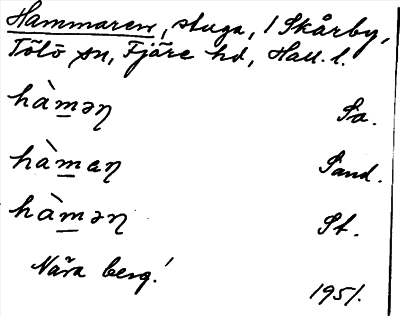 Hammaren, stuga, i Skårby,
Tölö sn, Fjäre hd, Hall. l.
hàm̲əŋ Sa.
hàm̲aŋ Sand.
hàm̲əŋ St.
Nära berg!
1951.